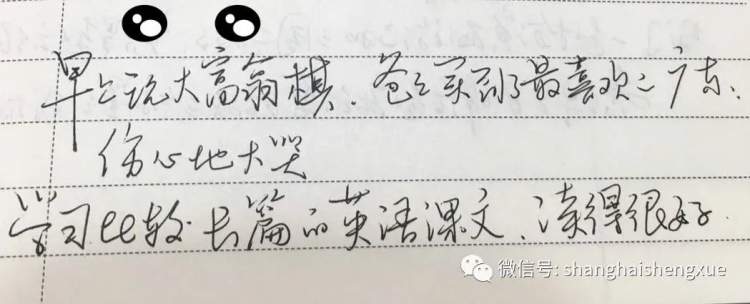 早上玩大富翁棋、爸爸买到了最喜欢的广东、
伤心地大哭
学习比较长篇的英语课文、读得很好.
微信号: shanghaishengxue